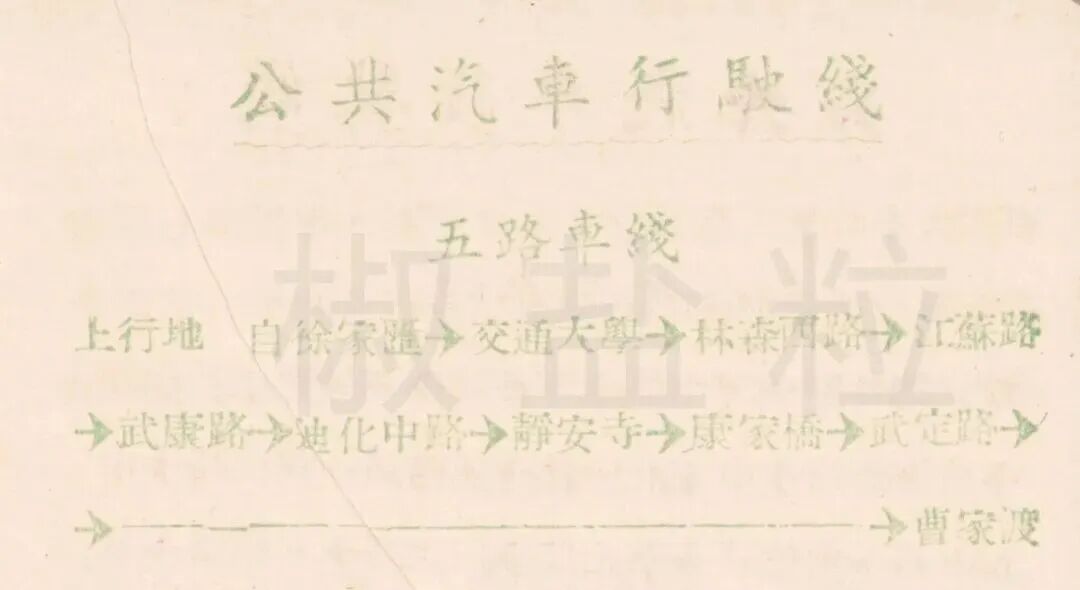 公共汽車行駛綫
五路車綫
上行地 自徐家匯→交通大學→林森西路→江蘇路
→武康路→迪化中路→靜安寺→康家橋→武定路→
→曹家渡
椒盐粒